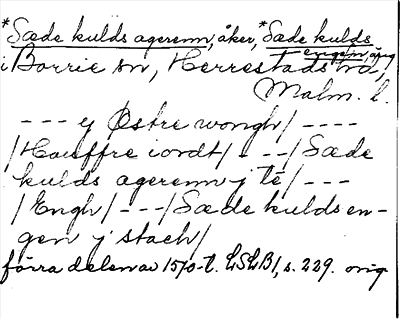 *Sæde kulds agerenn, åker, *Sæde kulds
engen, äng
i Borrie sn, Herrestads hd,
Malm. l.
--- ej Østre wongh/ ----
/Haeffre iordt/ - -- /Sæde
kulds agerenn j tē/ ---
/Engh/ ---/Sæde kulds en-
gen j stæch/
förra delen av 1570-t. LSLB1, s. 229. orig